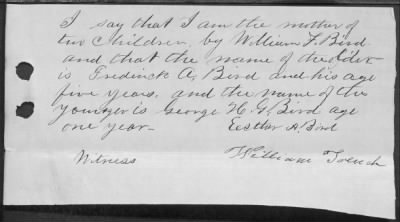 I say that I am the mother of
two Children, by William F. Bird
and that the name of the older
is Frederick A, Bird and his age
five years, and the name of the
younger is George H. G. Bird age
one year -
Eesther A. Bird
Witness William French